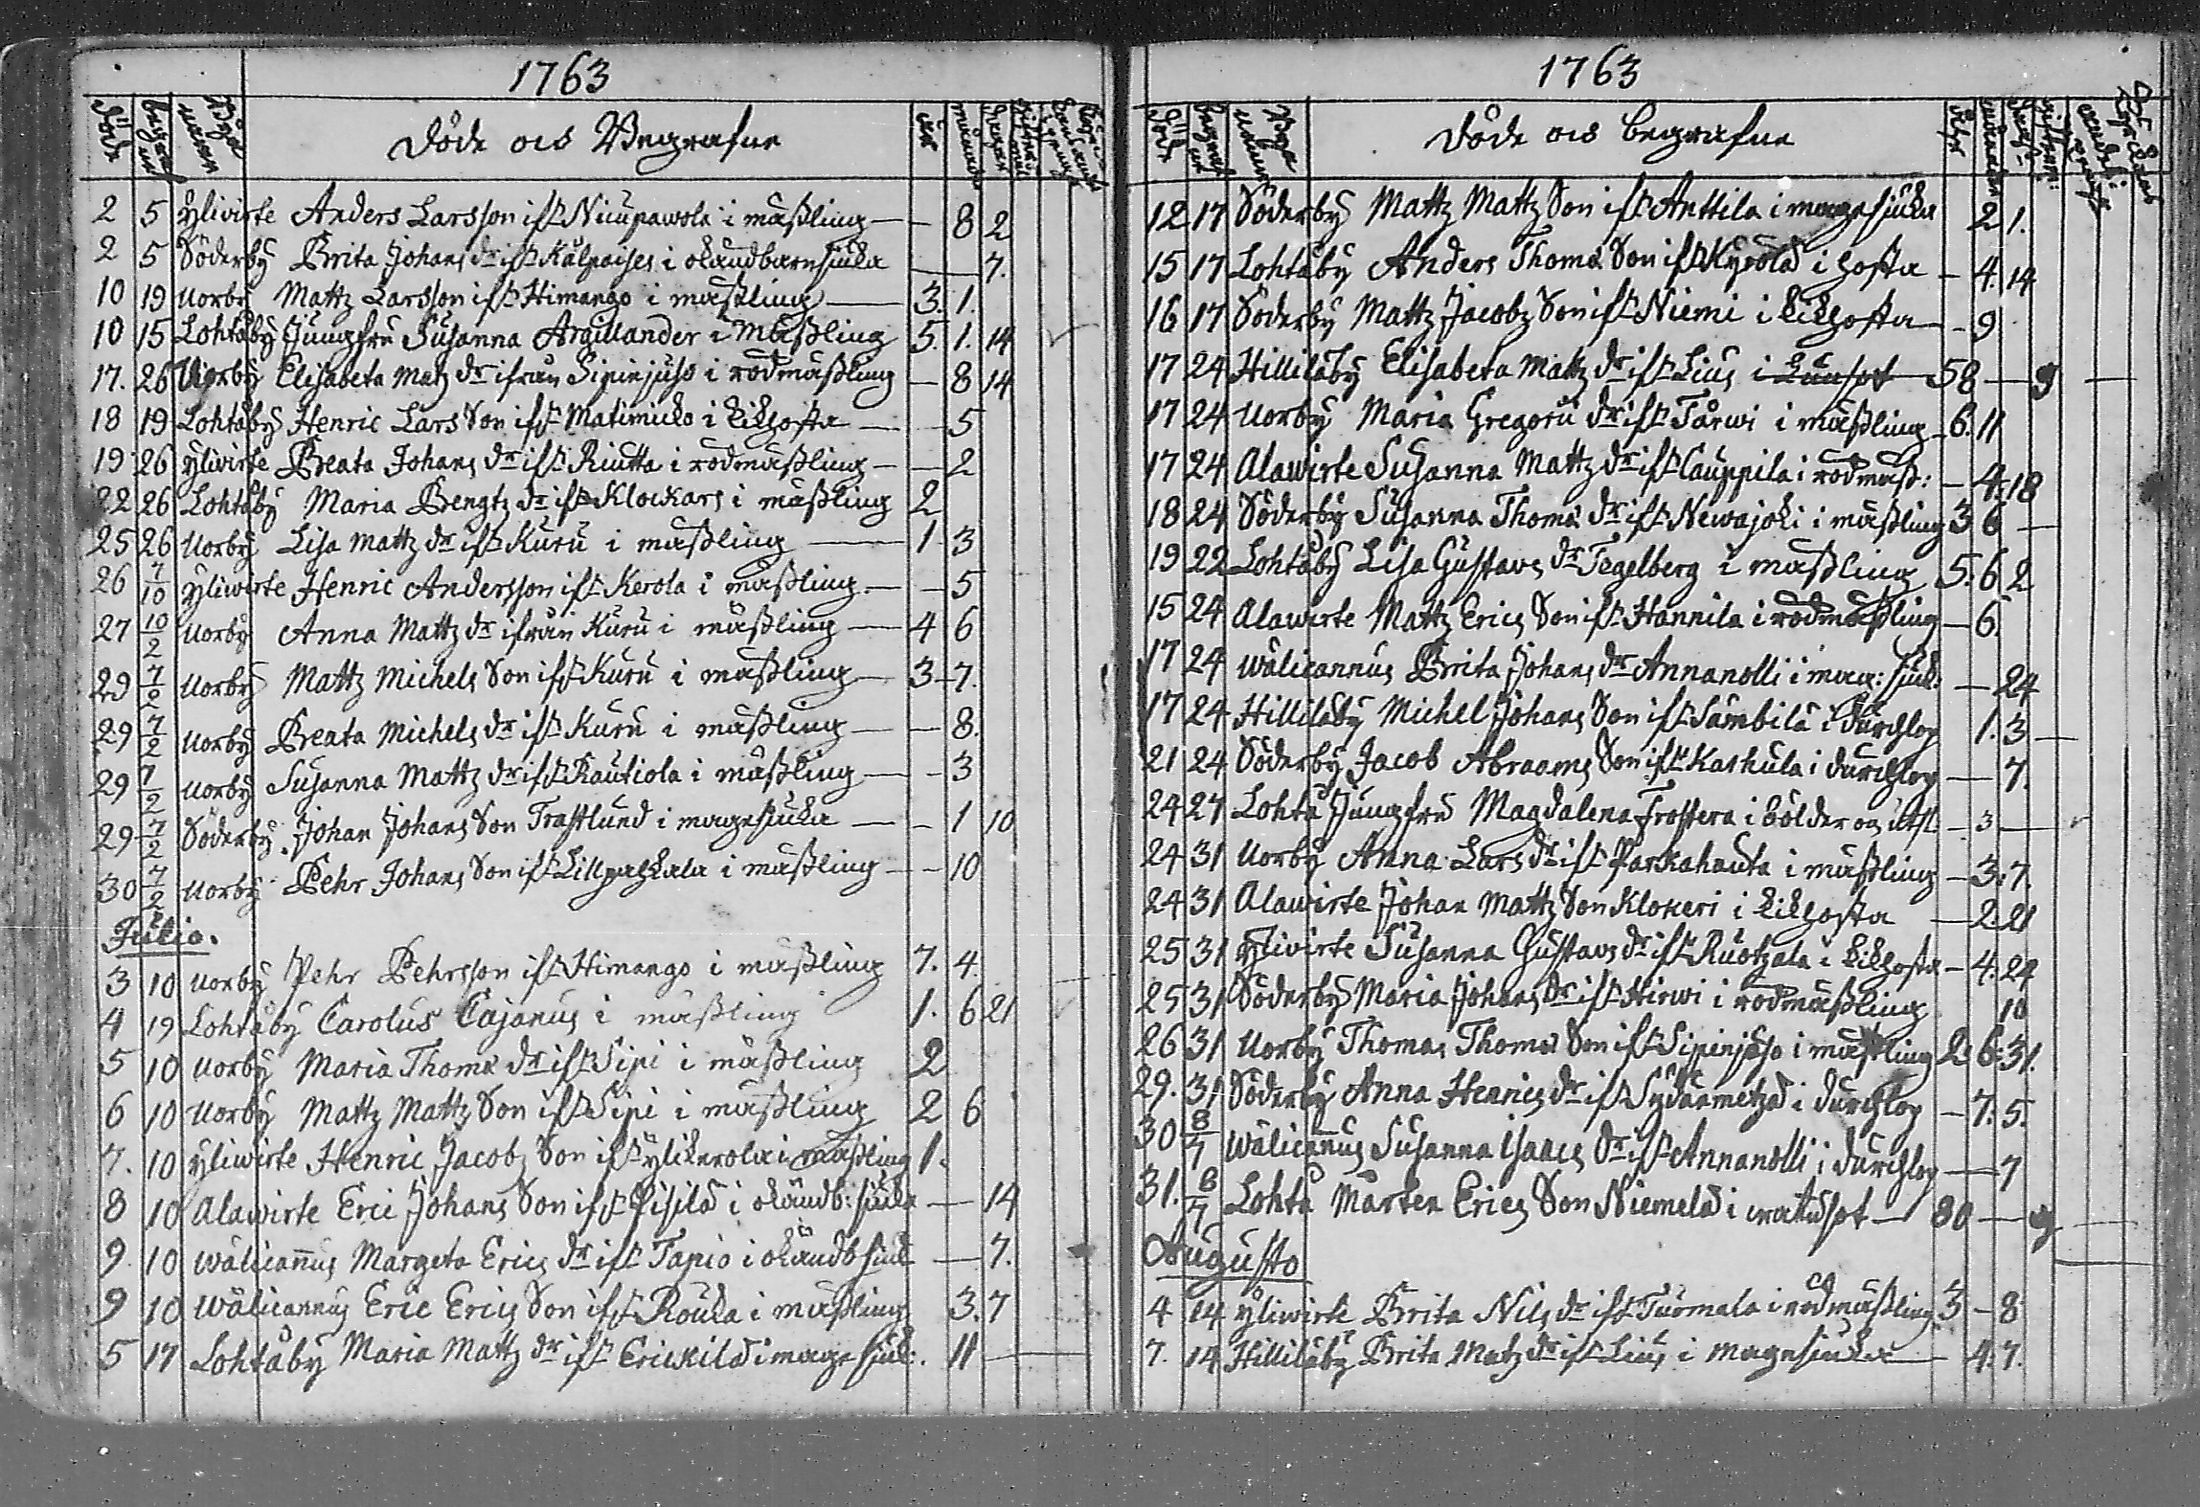 1763
Döde
Döde och Begrafne
åhr
2 5 Ylivirte Anders Larsson ifr. i mäßling — 8 2
2 5 Söderby Brita Johans dr ifr. i okändbarnsiuka — 7.
10 19 Uorby Mattz Larsson ifr. Himango i mäßling — 3. 1.
10 15 Lohtåby Jungfru Susanna Argillander i Mäßling 5. 1. 14
17. 26 Uorby Elisabeta Matz dr ifrån Sipinjuso i rödmäßling — 8 14
18 19 Lohtåby Henric Lars Son ifr. Matinicko i kikhosta — 5
19 26 Ylivirte Beata Johans dr ifr. Riutta i rödmäßling — 2
22 26 Lohtåby Maria Bengtz dr ifr. Klockars i mäßling 2
25 26 Uorby Lisa Mattz dr ifr. Kuru i mäßling — 1 3
26 7/10 Yliwirte Henric Andersson ifr. Kerola i mäßling — 5
27 10/2 Uorby Anna Mattz dr ifrån Kuru i mäßling — 4 6
29 7/2 Uorby Mattz Michels Son ifr. Kuru i mäßling — 3 7.
29 7/2 Uorby Beata Michels dr ifr. Kuru i mäßling — 8.
29 7/2 Uorby Susanna Mattz dr ifr. Rautiola i mäßling — 3
29 7/2 Söderby Johan Johans Son Trastlund i magesiuka — 1 10
30 7/2 Uorby Pehr Johans Son ifr. i mäßling — 10
Julio.
3 10 Uorby Pehr Pehrsson ifr. Himango i mäßling 7. 4.
4 19 Lohtåby Carolus Cajanus i mäßling 1. 6 21
5 10 Uorby Maria Thoma dr ifr. Sipi i mäßling 2
6 10 Uorby Mattz Mattz Son ifr. Sipi i mäßling 2 6
7. 10 Yliwirte Henric Jacobz Son ifr. Ylikerola i mäßling 1.
8 10 Alawirte Eric Johans Son ifr. Pisilä i okändb: siuka — 14
9. 10 Wälicannus Margeta Erics dr ifr. Tapio i okändb siuk — 7.
9 10 Wälicannus Eric Erics Son ifr. Rouka i mäßling 3. 7
5 17 Lohtåby Maria Mattz dr ifr. Erickilä i mage siuk: 11 —
1763
Döde
Döde och begrafne
åhr
12 17 Söderby Mattz Mattz Son ifr. Anttila i magesiuka 2 1.
15 17 Lohtåby Anders Thoma Son ifr. Kyrölä i hosta — 4. 14
16 17 Söderby Mattz Jacobz Son ifr. Niemi i kikhosta — 9
17 24 Hillilåby Elisabeta Mattz dr ifr. Lius i Lunsot 58 — g —
17 24 Uorby Maria Gregorii dr ifr. Tårwi i mäßling — 6. 11
17 24 Alawirte Susanna Mattz dr ifr. Cauppila i rödmäß: — 4. 18
18 24 Söderby Susanna Thoma dr ifr. Newajoki i mäßling 3 6 —
19 22 Lohtåby Lisa Gustavs dr Tegelberg i mäßling 5. 6 2
15 24 Alawirte Mattz Erics Son ifr. Hannila i rödmäßling — 6
17 24 Wälicannus Brita Johans dr Annanolli i mag: siuk: — 24
17 24 Hillilåby Michel Johans Son ifr. Sämbilä i durchlop 1. 3 —
21 24 Söderby Jacob Abraams Son ifr. Kashula i durchlop — 7.
24 27 Lohtå Jungfru Magdalena Frostera i bölder og utsl. — 3 —
24 31 Uorby Anna Lars dr ifr. Parkahauta i mäßling — 3: 7.
24 31 Alawirte Johan Mattz Son Klokeri i kikhosta — 2. 21
25 31 Ylivirte Susanna Gustavs dr ifr. Ruotzala i kikhosta — 4. 24
25 31 Söderby Maria Johans dr ifr. Hirwi i rödmäßling 10
26 31 Uorby Thomas Thoma Son ifr. Sipinjuso i mäßling 2. 6. 31.
29. 31 Söderby Anna Henrics dr ifr. Sydänmetzä i durchlop — 7. 5.
30 8/7 Wälicannus Susanna Isaacs dr ifr. Annanolli i durchlop — 7
31. 8/7 Lohtå Mårten Erics Son Niemelä i watusot — 80 — g
Augusto
4 14 Yliwirte Brita Nils dr ifr. Tuomala i rödmäßling 3 — 8
7. 14 Hillilåby Brita Matz dr ifr. Lius i magesiuka — 4. 7.